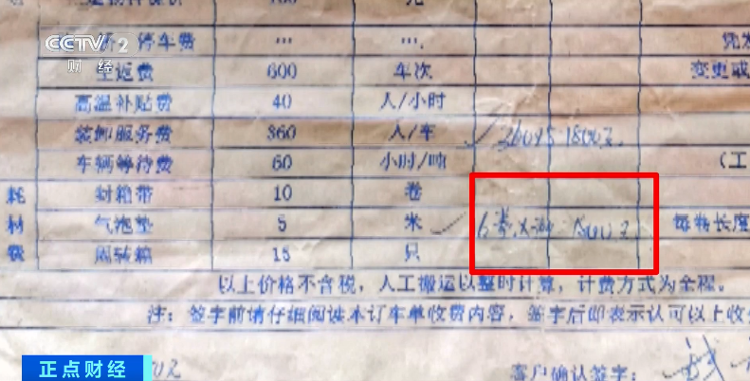 CCTV 2
财经
停车费 … ….
空返费 600 车次 变更或
高温补贴费 40 人/小时
装卸服务费 360 人/车 360×5 1800元
车辆等待费 60 小时/吨 (工
耗 封箱带 10 卷
材 气泡垫 5 米 每卷长度
费 周转箱 15 只
以上价格不含税，人工搬运以整时计算，计费方式为全程。
注：签字前请仔细阅读本订车单收费内容，签字后即表示认可以上收
客户确认签字：
正点财经